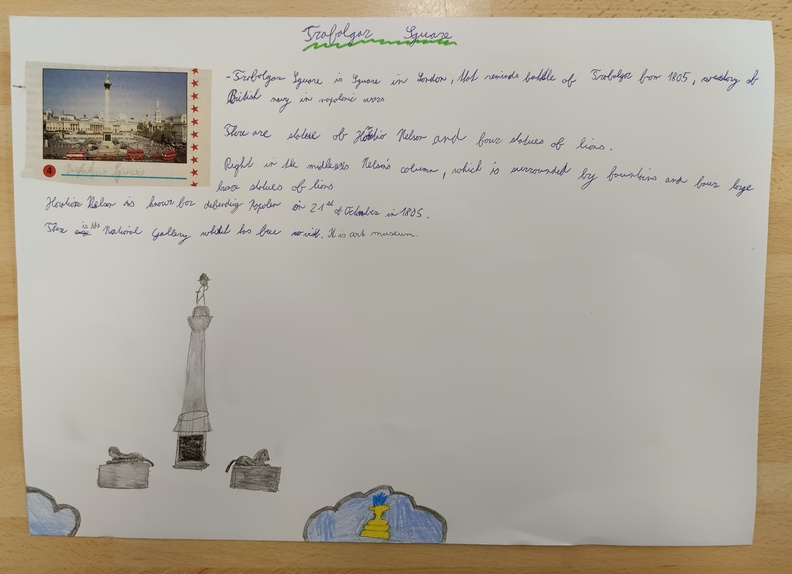 Trafalgar Square
- Trafalgar Square is Square in London, that reminds battle of Trafalgar from 1805, victory of
British navy in napolonic wars
There are statue of Hotatio Nelson and four statues of lions.
Right in the middle is Nelson's column, which is surrounded by fountains and four large
bronze statues of lions
4 Trafalgar Square
Horatio Nelson is known for defending Napoleon in 21st of October in 1805.
There is the National Gallery which has free . It is art museum.